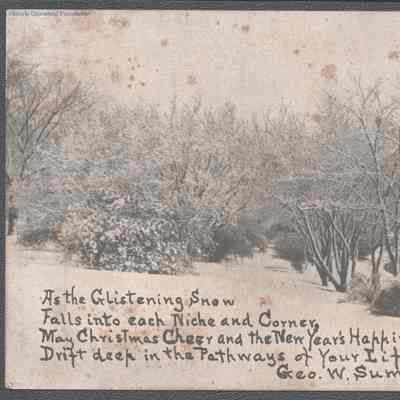 As the Glistening Snow
Falls into each Niche and Corner,
May Christmas Cheer and the New Year's Happi
Drift deep in the Pathways of Your Lif
Geo. W. Sum